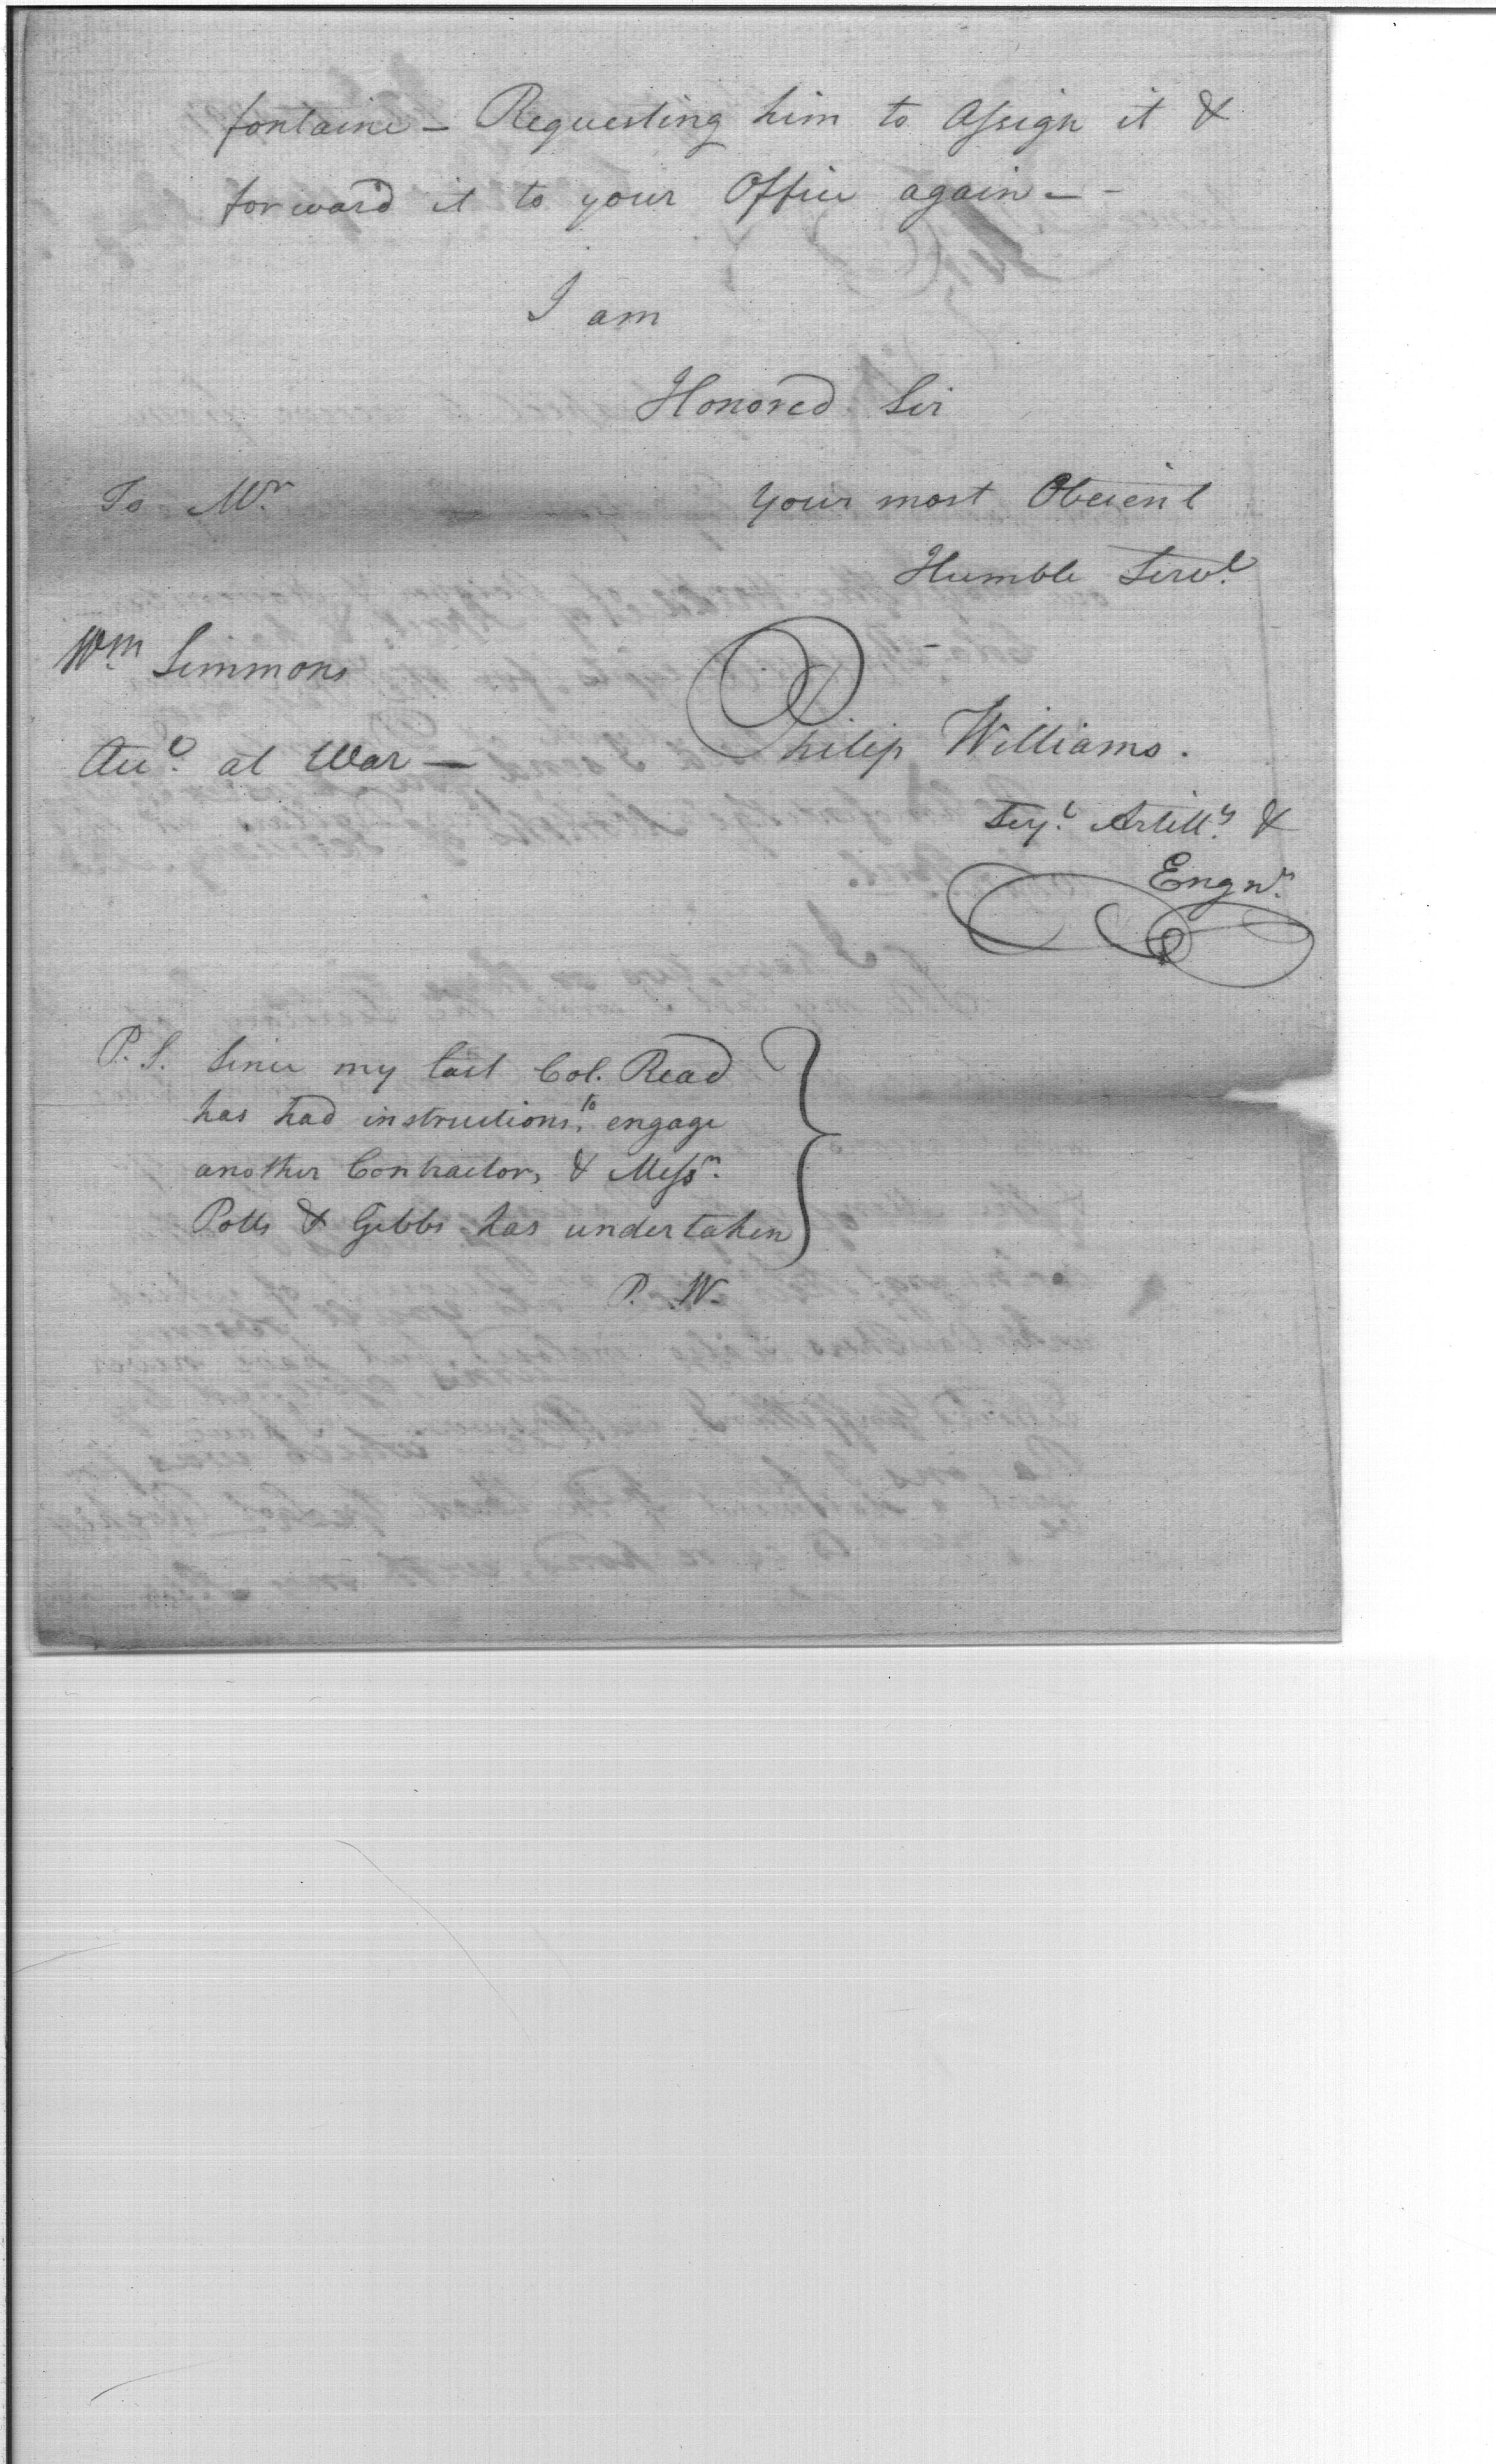 fontaine – Requesting him to Assign it &
forward it to your Office again – -
I am
Honored Sir
To Mr.
your most Obeient
Humble Servt.
Wm Simmons
Philip Williams.
at War —
Serjt. Artilly. &
Engnrs.
P. S. Since my last Col. Read
has had instructions, to engage
another Contractor, & Messrs.
Potts & Gibbs has undertaken
P. W.